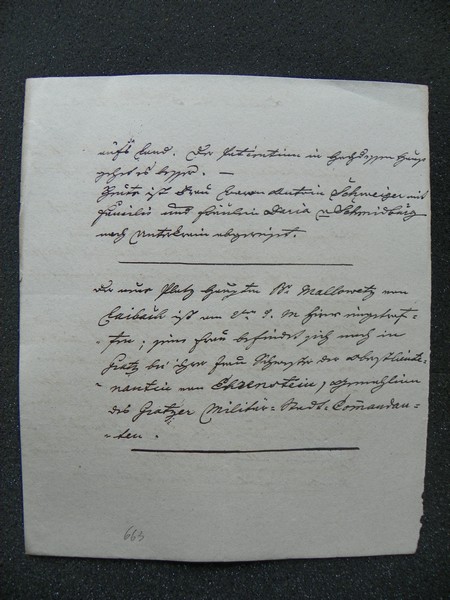 aufs Land. Der Patientin in
geht es besser. —
Heute ist Frau Baron Schweiger mit
Familie und Fräulein Maria v Schmidburg
nach Unterkrain abgereist.
Der neue Platz Hauptm Br Mallowetz von
Laibach ist am d. M hier eingetrof-
-fen; seine Frau befindet sich noch in
Gratz bei ihrer Frau Schwester der Oberstlieute-
-nantin von Ehrenstein, Gemahlin
des Gratzer Militär-Stadt-Comandan-
-ten.
663